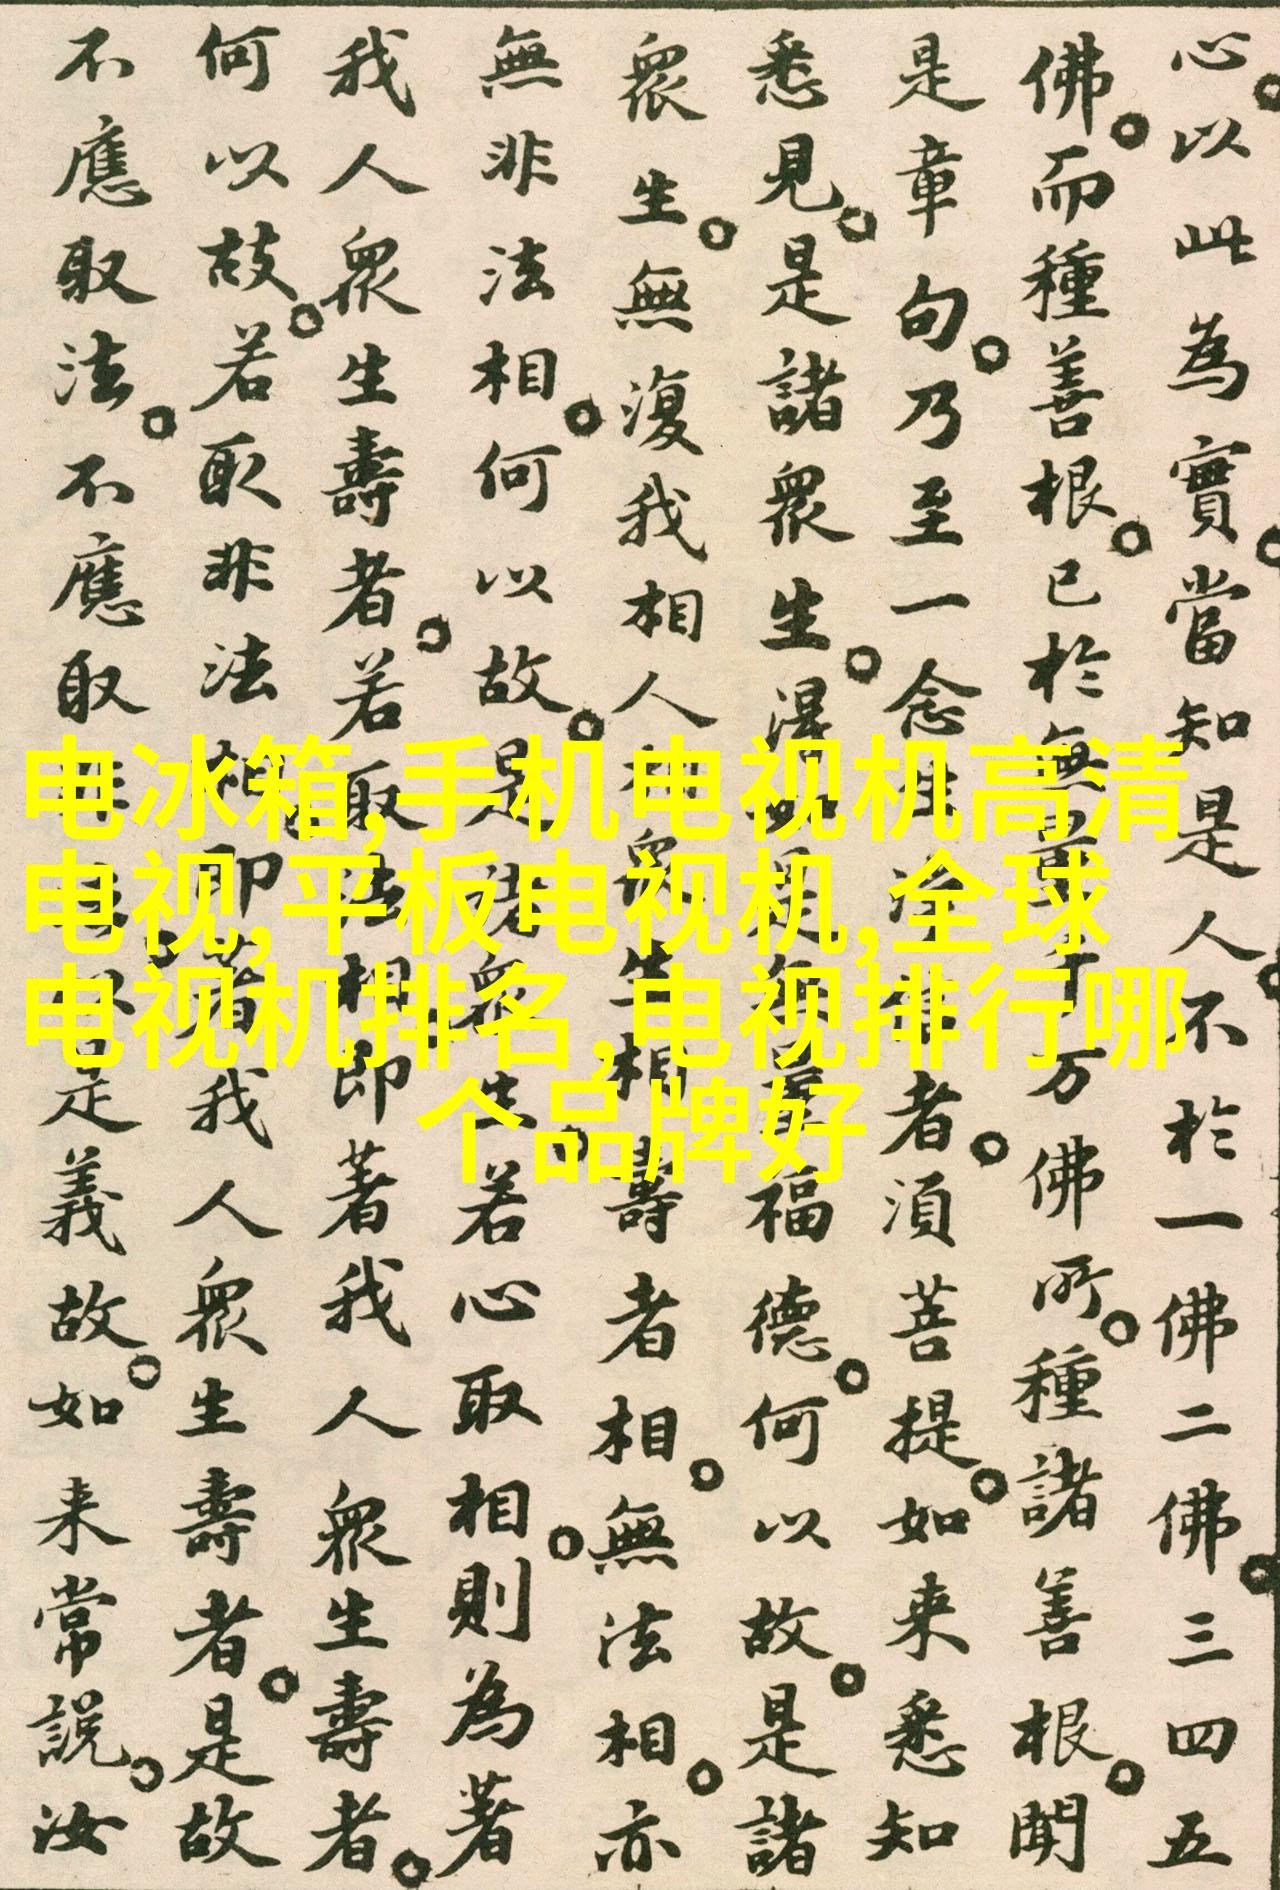 心。以此為實。當知是人。不於一佛二佛。三四五
佛。而種善根。已於無量千万佛所。種諸善根。聞
是章句。乃至一念生淨信者。須菩提。如来悉知
悉見。是諸眾生。得如是無量福德。何以故。是諸
眾生。無復我相人相眾生相壽者相。無法相。亦
無非法相。何以故。是諸眾生。若心取相。則為著
我人眾生壽者。若取法相。即著我人眾生壽者。
何以故。若取非法相。即著我人眾生壽者。是故
不應取法。不應取非法。以是義故。如来常說。汝
电冰箱,手机电视机高清
电视,平板电视机,全球
电视机排名,电视排行哪
个品牌好